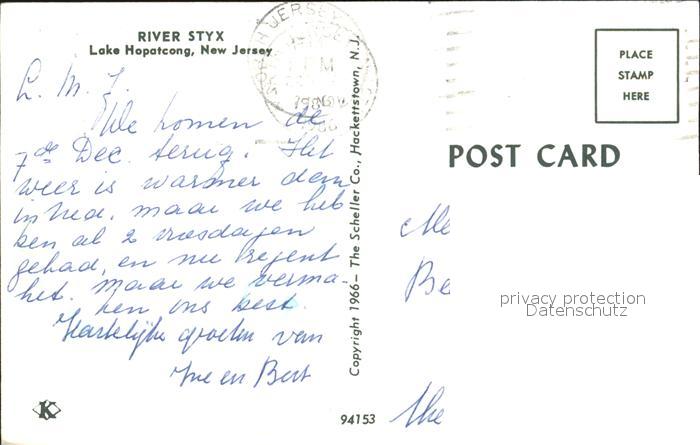 RIVER STYX
Lake Hopatcong, New Jersey
L. M. J.
We komen de
7de Dec. terug. Het
weer is warmer dan
in Ned. maar we heb
ben al 2 vriesdagen
gehad, en nu regent
het. Maar we verma-
ken ons best.
Hartelijke groeten van
en Bert
K
Copyright 1966 – The Scheller Co., Hackettstown, N.J.
94153
PLACE
STAMP
HERE
POST CARD
JERSEY
PM
Me
Be
privacy protection
Datenschutz
The